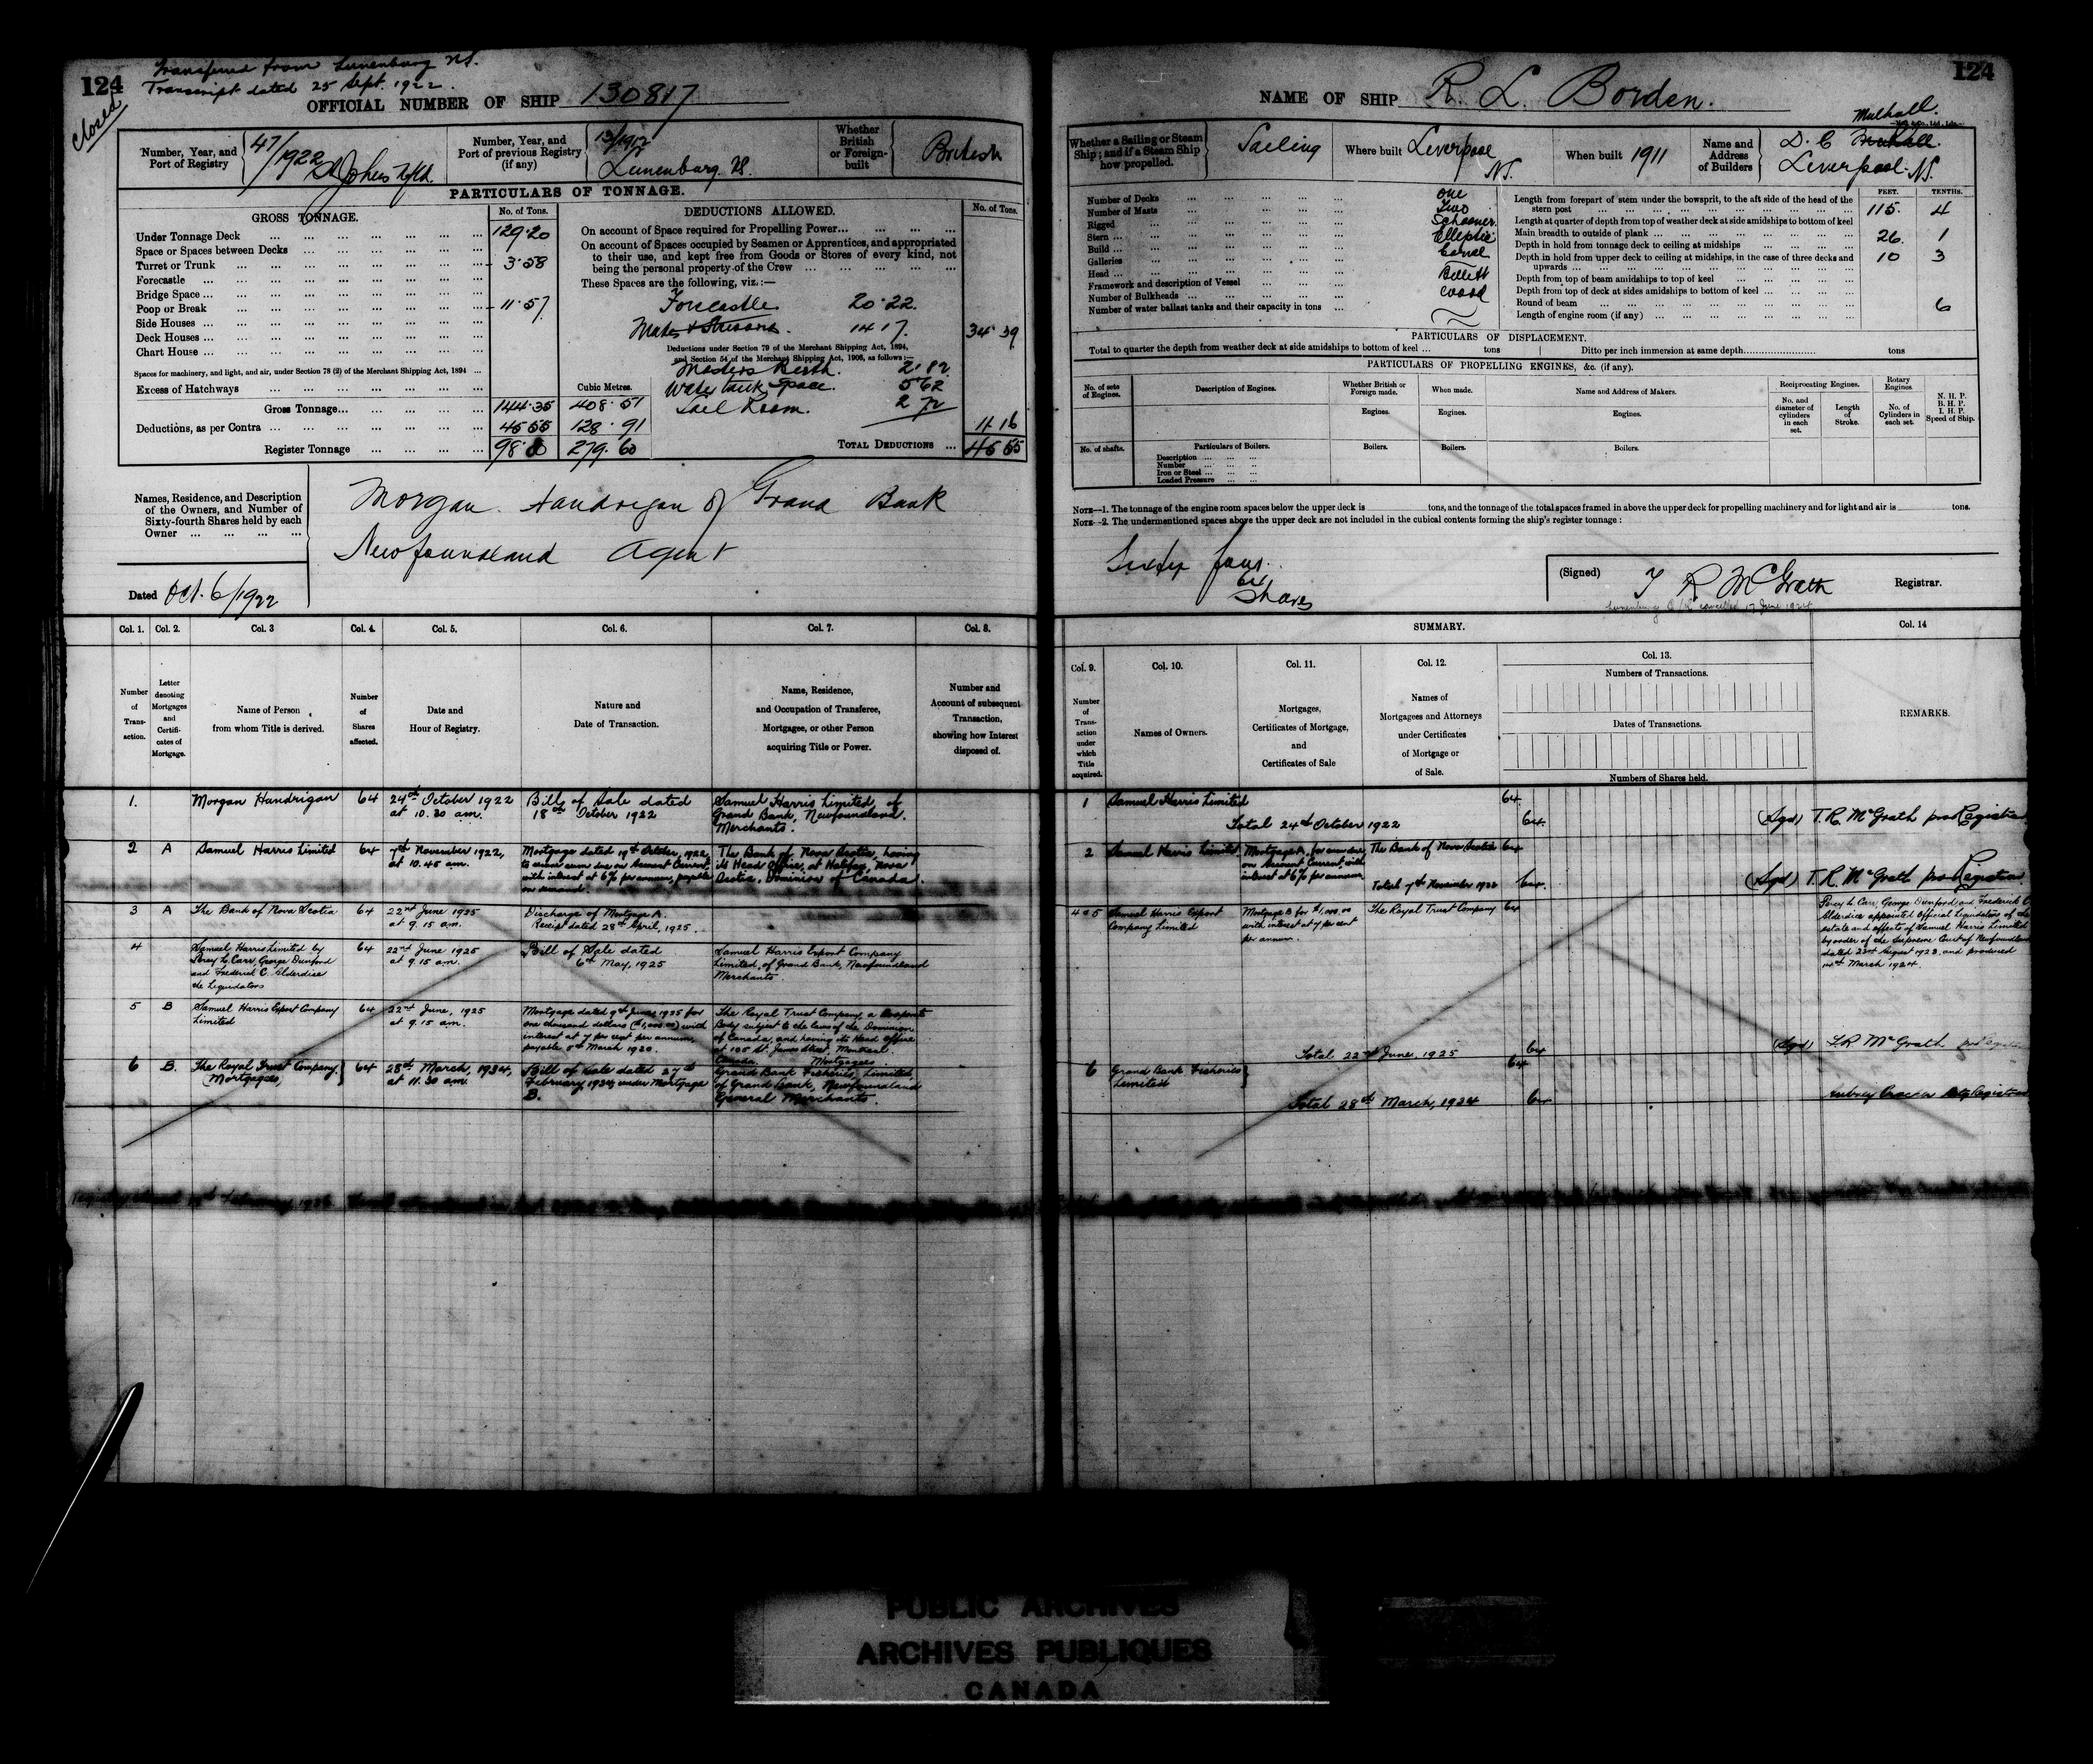 124
Transferred from Lunenburg NS.
Transcript dated 25 Sept. 1922.
Closed
OFFICIAL NUMBER OF SHIP 130817
Number, Year, and Port of Registry 47/1922 St Johns Nfld.
Number, Year, and Port of previous Registry (if any) 13/1912 Lunenburg. NS.
Whether British or Foreign-built British
PARTICULARS OF TONNAGE.
GROSS TONNAGE. No. of Tons.
Under Tonnage Deck 129.20
Space or Spaces between Decks
Turret or Trunk 3.58
Forecastle
Bridge Space
Poop or Break 11.57
Side Houses
Deck Houses
Chart House
Spaces for machinery, and light, and air, under Section 78 (2) of the Merchant Shipping Act, 1894
Excess of Hatchways
Cubic Metres.
Gross Tonnage 144.35 408.51
Deductions, as per Contra 45 55 128.91
Register Tonnage 98.80 279.60
DEDUCTIONS ALLOWED. No. of Tons.
On account of Space required for Propelling Power
On account of Spaces occupied by Seamen or Apprentices, and appropriated
to their use, and kept free from Goods or Stores of every kind, not
being the personal property of the Crew
These Spaces are the following, viz.:—
Forecastle 20.22.
Mates 14 17. 34 39
Deductions under Section 79 of the Merchant Shipping Act, 1894,
and Section 54 of the Merchant Shipping Act, 1906, as follows:—
Masters Berth. 2.82.
Water tank space. 5 62
Sail Room. 2 72
11 16
TOTAL DEDUCTIONS 45 55
Names, Residence, and Description
of the Owners, and Number of
Sixty-fourth Shares held by each
Owner
Morgan Handrigan of Grand Bank
Newfoundland Agent
Dated Oct. 6/1922
124
NAME OF SHIP R. L. Borden.
Whether a Sailing or Steam Ship; and if a Steam Ship how propelled. Sailing
Where built Liverpool NS.
When built 1911
Name and Address of Builders D. C Mulhall. Liverpool. NS.
FEET. TENTHS.
Number of Decks one
Number of Masts Two
Rigged Schooner
Stern Elliptic
Build Carvel
Galleries
Head Billett
Framework and description of Vessel Wood
Number of Bulkheads
Number of water ballast tanks and their capacity in tons
Length from forepart of stem under the bowsprit, to the aft side of the head of the
stern post 115. 4
Length at quarter of depth from top of weather deck at side amidships to bottom of keel
Main breadth to outside of plank 26. 1
Depth in hold from tonnage deck to ceiling at midships 10 3
Depth in hold from upper deck to ceiling at midships, in the case of three decks and
upwards
Depth from top of beam amidships to top of keel
Depth from top of deck at sides amidships to bottom of keel
Round of beam 6
Length of engine room (if any)
PARTICULARS OF DISPLACEMENT.
Total to quarter the depth from weather deck at side amidships to bottom of keel tons Ditto per inch immersion at same depth tons
PARTICULARS OF PROPELLING ENGINES, &c. (if any).
No. of sets of Engines. Description of Engines. Whether British or Foreign made. When made. Name and Address of Makers. Reciprocating Engines. Rotary Engines N. H. P. B. H. P. I. H. P. Speed of Ship.
Engines. Engines. Engines. No. and diameter of cylinders in each set. Length of Stroke. No. of Cylinders in each set.
No. of shafts. Particulars of Boilers. Boilers. Boilers. Boilers.
Description
Number
Iron or Steel
Loaded Pressure
NOTE—1. The tonnage of the engine room spaces below the upper deck is tons, and the tonnage of the total spaces framed in above the upper deck for propelling machinery and for light and air is tons.
NOTE—2. The undermentioned spaces above the upper deck are not included in the cubical contents forming the ship's register tonnage:
Sixty four
64
Shares
(Signed) T R McGrath Registrar.
Lunenburg cancelled 17 June 1924
Col. 1. Col. 2. Col. 3 Col. 4. Col. 5. Col. 6. Col. 7. Col. 8.
Number of Transaction.
Letter denoting Mortgages and Certificates of Mortgage.
Name of Person from whom Title is derived.
Number of Shares affected.
Date and Hour of Registry.
Nature and Date of Transaction.
Name, Residence, and Occupation of Transferee, Mortgagee, or other Person acquiring Title or Power.
Number and Account of subsequent Transaction, showing how Interest disposed of.
1. Morgan Handrigan 64 24th October 1922 at 10.30 am. Bill of Sale dated 18th October 1922 Samuel Harris Limited, of Grand Bank, Newfoundland. Merchants.
2 A Samuel Harris Limited 64 7th November 1922, at 10.45 am. Mortgage dated 19th October, 1922, to secure sum due on Account Current, with interest at 6% per annum, payable on demand. The Bank of Nova Scotia, having its Head Office, at Halifax, Nova Scotia, Dominion of Canada.
3 A The Bank of Nova Scotia 64 22nd June 1925 at 9.15 am. Discharge of Mortgage A. Receipt dated 28th April, 1925.
4 Samuel Harris Limited by Percy L. Carr, George Dunford and Frederick C. Alderdice the Liquidators 64 22nd June 1925 at 9.15 am. Bill of Sale dated 6th May, 1925 Samuel Harris Export Company Limited, of Grand Bank, Newfoundland Merchants.
5 B Samuel Harris Export Company Limited 64 22nd June, 1925 at 9.15 am. Mortgage dated 9th June 1925 for one thousand dollars ($1,000.00) with interest at 7 per cent per annum, payable 5th March 1930. The Royal Trust Company, a Corporate Body subject to the laws of the Dominion of Canada, and having its Head Office at 105 St. James Street Montreal Canada. Mortgagees
6 B. The Royal Trust Company (Mortgagees) 64 28th March, 1934, at 11.30 am. Bill of Sale dated 27th February 1934 under Mortgage B. Grand Bank Fisheries, Limited of Grand Bank, Newfoundland General Merchants.
SUMMARY.
Col. 9. Col. 10. Col. 11. Col. 12. Col. 13. Col. 14
Number of Transaction under which Title acquired.
Names of Owners.
Mortgages, Certificates of Mortgage, and Certificates of Sale
Names of Mortgagees and Attorneys under Certificates of Mortgage or of Sale.
Numbers of Transactions.
Dates of Transactions.
Numbers of Shares held.
REMARKS.
1 Samuel Harris Limited 64
Total 24th October 1922 64. (Sgd) T. R. McGrath pro Registrar
2 Samuel Harris Limited. Mortgage A, for sum due on Account Current, with interest at 6% per annum The Bank of Nova Scotia 64
Total 7th November 1922 64. (Sgd) T. R. McGrath pro Registrar.
4 & 5 Samuel Harris Export Company Limited Mortgage B for $1,000.00 with interest at 7 per cent per annum. The Royal Trust Company 64
Percy L. Carr, George Dunford and Frederick C.
Alderdice appointed Official Liquidators of the
estate and effects of Samuel Harris Limited
by order of the Supreme Court of Newfoundland
dated 23rd August 1923 and produced
14th March 1924.
Total 22nd June, 1925 64 (Sgd) T.R McGrath pro Registrar
6 Grand Bank Fisheries Limited 64
Total 28th March, 1934 64 Aubrey Crocker Registrar
PUBLIC ARCHIVES
ARCHIVES PUBLIQUES
CANADA